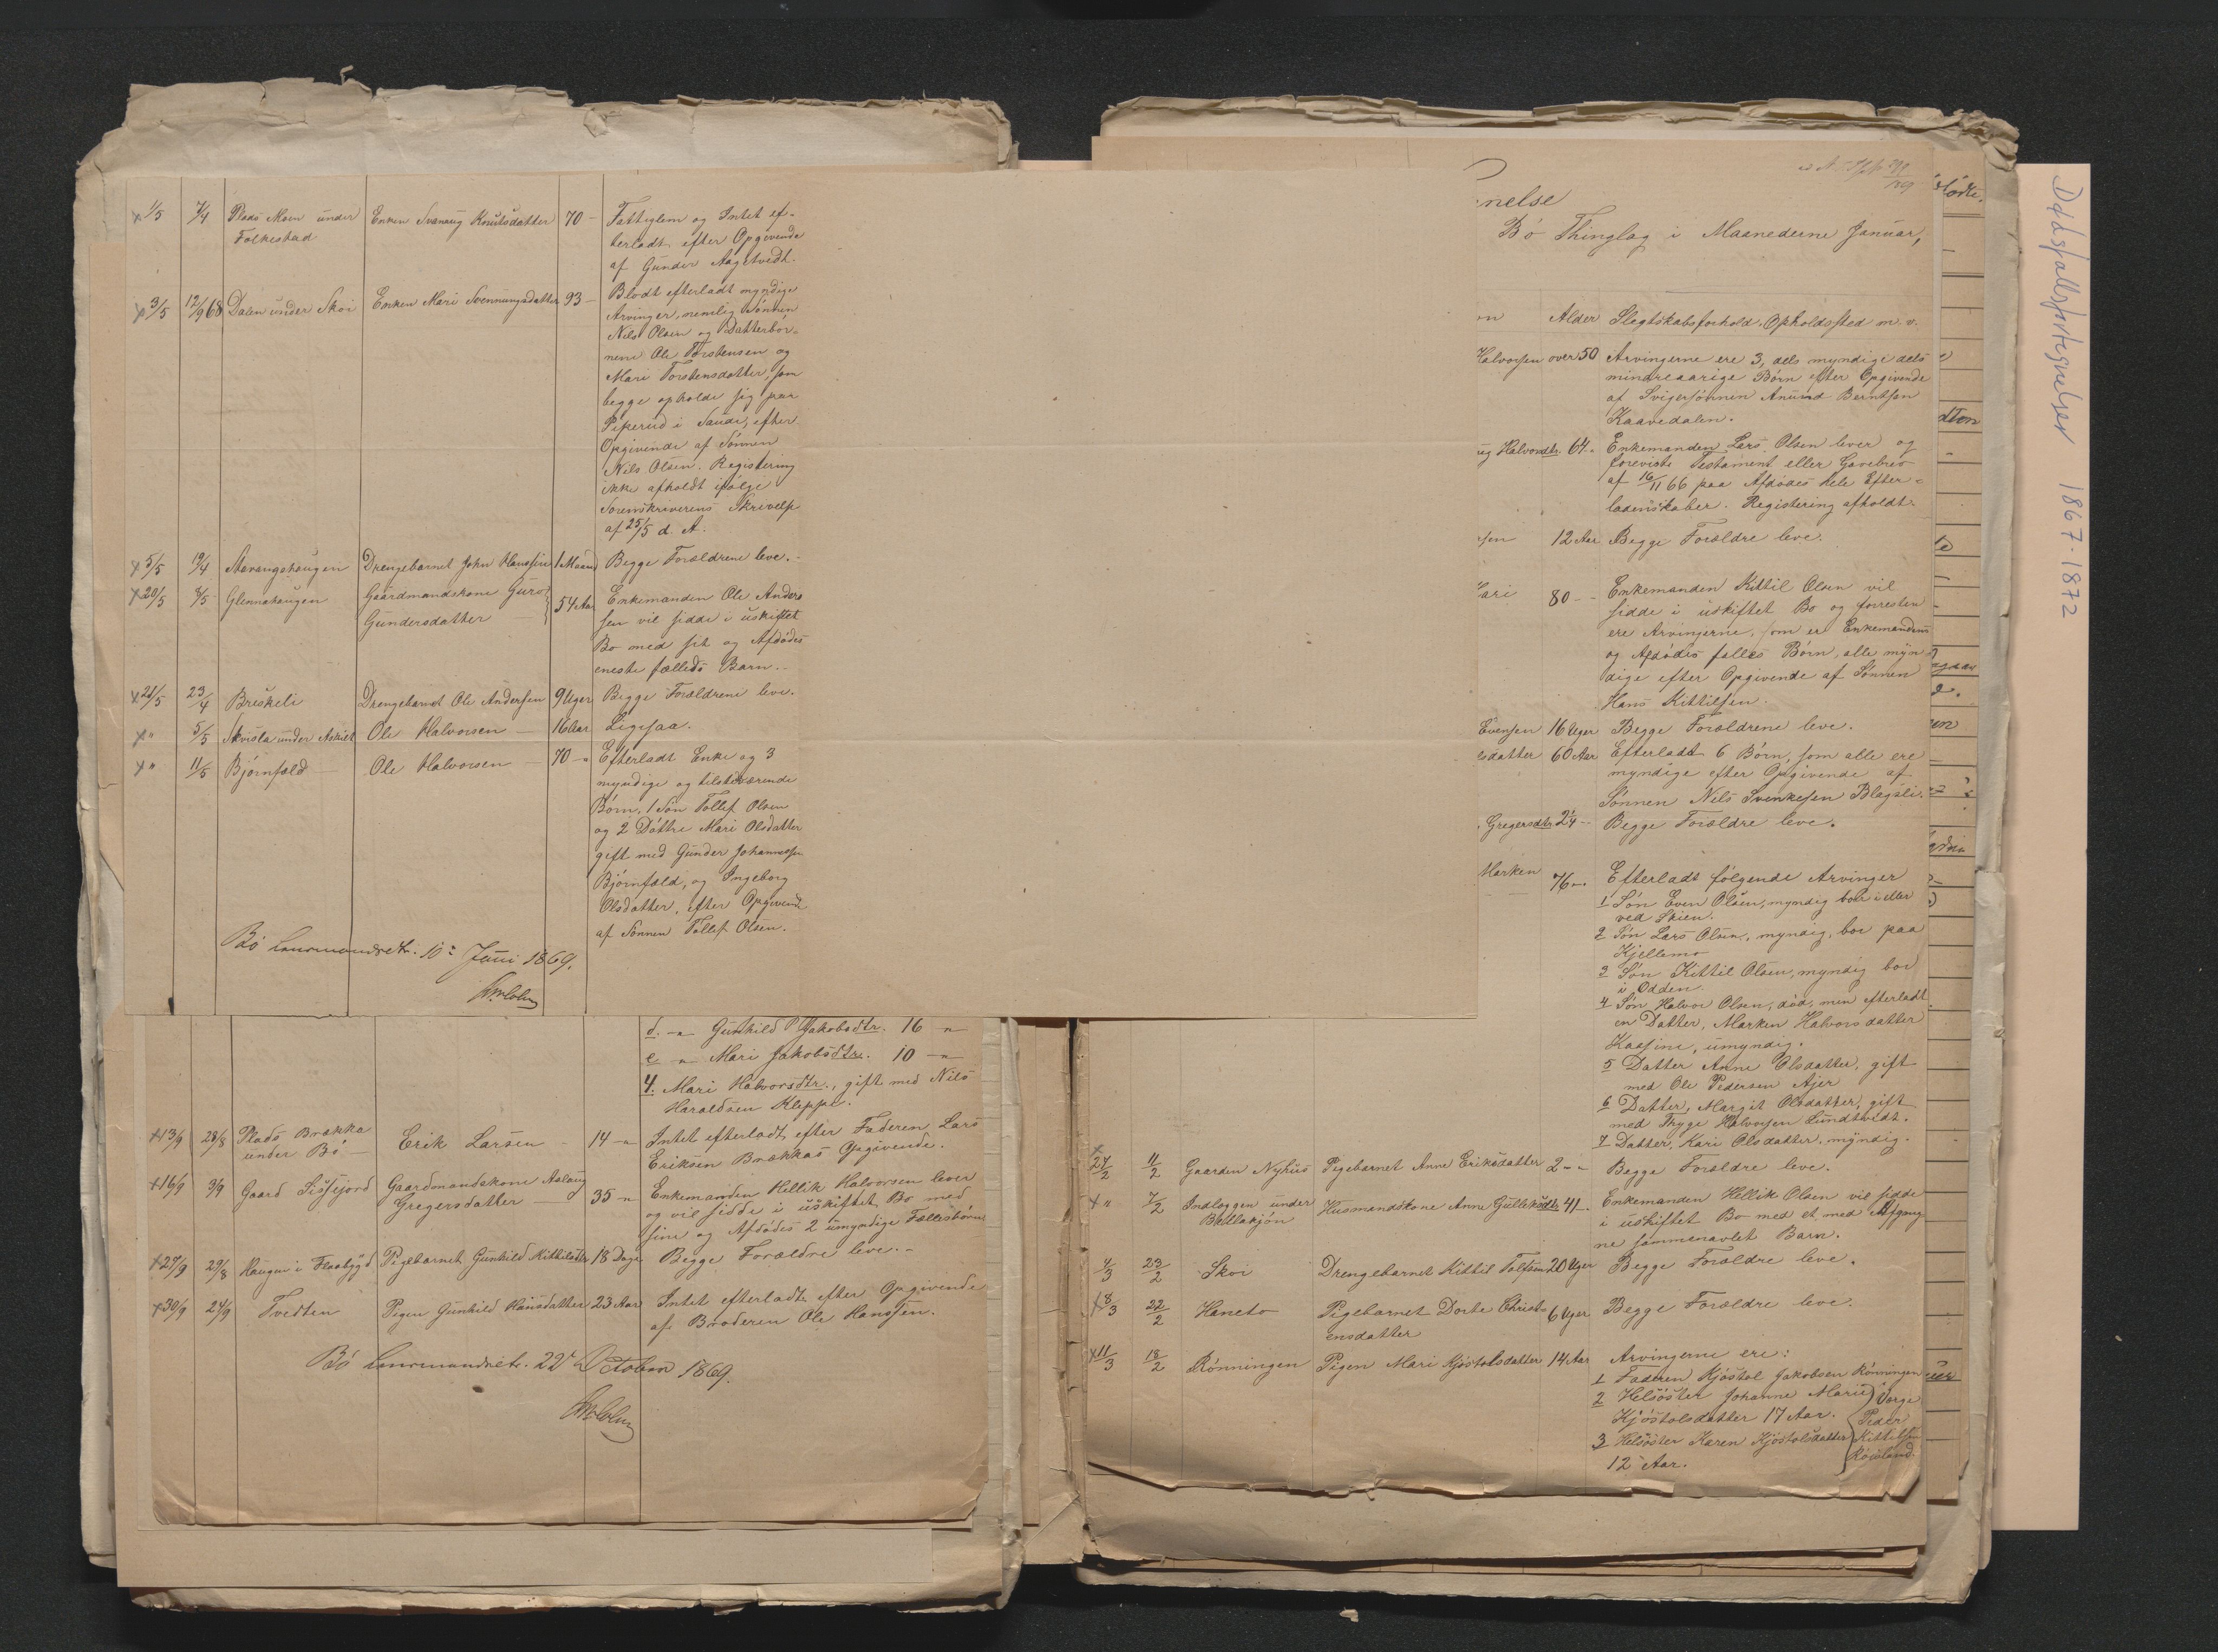 x 1/5 7/4 Plads Moen under Enken Svanaug Knutsdatter 70 - Fattiglem og Intet ef-
Folkestad terladt efter Opgivende
af Gunder Aagetvedt.
x 3/5 12/9 68 Dalen under Skoi Enken Mari Svennungsdatter 93 - Blodt efterladt myndige
Arvinger, nemlig Sønnen
Nils Olsen og Datterbør-
nene Ole Torstensen og
Mari Torstensdatter, som
begge opholde sig paa
Piperud i Saude, efter
Opgivende af Sønnen
Nils Olsen. Registering
ikke afholdt ifølge
Sorenskriverens Skrivelse
af 25/5 d. A.
x 5/5 19/4 Aavangshaugen Drengebarnet John Hanssen 1 Maaned Begge Forældrene leve.
x 20/5 7/5 Glennehaugen Gaardmandskone Guro 54 Aar Enkemanden Ole Ander-
Gundersdatter sen vil sidde i uskiftet
Bo med sit og Afdødes
eneste fælleds Barn.
x 21/5 23/4 Breskeli Drengebarnet Ole Andersen 9 Uger Begge Forældrene leve.
x " 5/5 Askilt Ole Halvorsen 16 Aar Ligesaa.
x " 11/5 Bjørnfæld Ole Halvorsen 70 - " Efterladt Enke og 3
myndige og tilstedeværende
Børn, 1 Søn Tollef Olsen
og 2 Døttre Mari Olsdatter
gift med Gunder Johannessen
Bjørnfæld, og Ingeborg
Olsdatter, efter Opgivende
af Sønnen Tollef Olsen.
Bø Lensmandsetr. 10de Juni 1869.
d. - " Gunhild Jakobsdtr. 16 - "
e - " Mari Jakobsdtr. 10 - "
4. Mari Halvorsdtr., gift med Nils
Haraldsen Kleppe.
x 13/9 28/8 Plads Brækka Erik Larsen - 14 - " Intet efterladt efter Faderen Lars
under Bø - Eriksen Brækkas Opgivende.
x 16/9 3/9 Gaard Sissejord Gaardmandskone Aslaug 35 - " Enkemanden Hellik Halvorsen lever
Gregersdatter og vil sidde i uskiftet Bo med
sine og Afdødes 2 umyndige Fællesbørn
x 27/9 29/8 Haugen i Flaabygd Pigebarnet Gunhild Kittilsdtr 18 Dage Begge Forældre leve. -
x 30/9 24/9 Tvedten Pigen Gunhild Hansdatter 23 Aar Intet efterladt efter Opgivende
af Broderen Ole Hanssen.
Bø Lensmandsetr. 22de October 1869.
nelse
Bø Thinglag i Maanederne Januar,
on Alder Slegtskabsforhold. Opholdssted m. v.
Halvorsen over 50 Arvingerne ere 3, dels myndige dels
mindreaarige Børn efter Opgivende
af Svigersønnen Anund Berntsen
Kaavedalen.
ug Halvorsdtr. 64 - Enkemanden Lars Olsen lever og
foreviste Testament eller Gavebrev
af 16/11 66 paa Afdødes hele Efter-
ladenskaber. Registering afholdt.
sen 12 Aar Begge Forældre leve.
Kari 80 - - Enkemanden Kittil Olsen vil
sidde i uskiftet Bo og forresten
ere Arvingerne, som er Enkemandens
og Afdødes fælles Børn, alle myn-
dige efter Opgivende af Sønnen
Hans Kittilsen.
Evensen 16 Uger Begge Forældrene leve.
sdatter 60 Aar Efterladt 6 Børn, som alle ere
myndige efter Opgivende af
Sønnen Nils Svenkesen Blegsli.
Gregersdtr 2 1/4 - Begge Forældre leve.
Marken 76 - " Efterladt følgende Arvinger
1 Søn Even Olsen, myndig bor i eller
ved Skien.
2 Søn Lars Olsen, myndig, bor paa
Kjellemo
3 Søn Kittil Olsen, myndig bor
i Odden.
4 Søn Halvor Olsen, død, men efterladt
en Datter, Marken Halvorsdatter
Kaasine, umyndig.
5 Datter Anne Olsdatter, gift
med Ole Pedersen Ajer
6 Datter, Margit Olsdatter, gift
med Trygve Halvorsen Lundtvedt.
7 Datter, Kari Olsdatter, myndig.
x 27/2 11/2 Gaarden Nyhus Pigebarnet Anne Eriksdatter 2 - " Begge Forældre leve.
x " 7/2 under Husmandskone Anne Gulleksdtr 41 - Enkemanden Hellik Olsen vil sidde
i uskiftet Bo med et med Afgang-
ne sammenavlet Barn.
4/3 23/2 Skoi Drengebarnet Kittil Tolfsen 20 Uger Begge Forældre leve.
x 8/3 22/2 Haneto Pigebarnet Dorte Christi- 6 Uger Begge Forældre leve.
ensdatter
x 11/3 18/2 Rønningen Pigen Mari Kjøstolsdatter 14 Aar Arvingerne ere:
1 Faderen Kjøstol Jakobsen Rønningen
2 Helsøster Johanne Marie Verge
Kjøstolsdatter 17 Aar. Peder
3 Helsøster Karen Kjøstolsdatter Kittilsen
12 Aar.
Dødsfallsfortegnelser 1867-1872